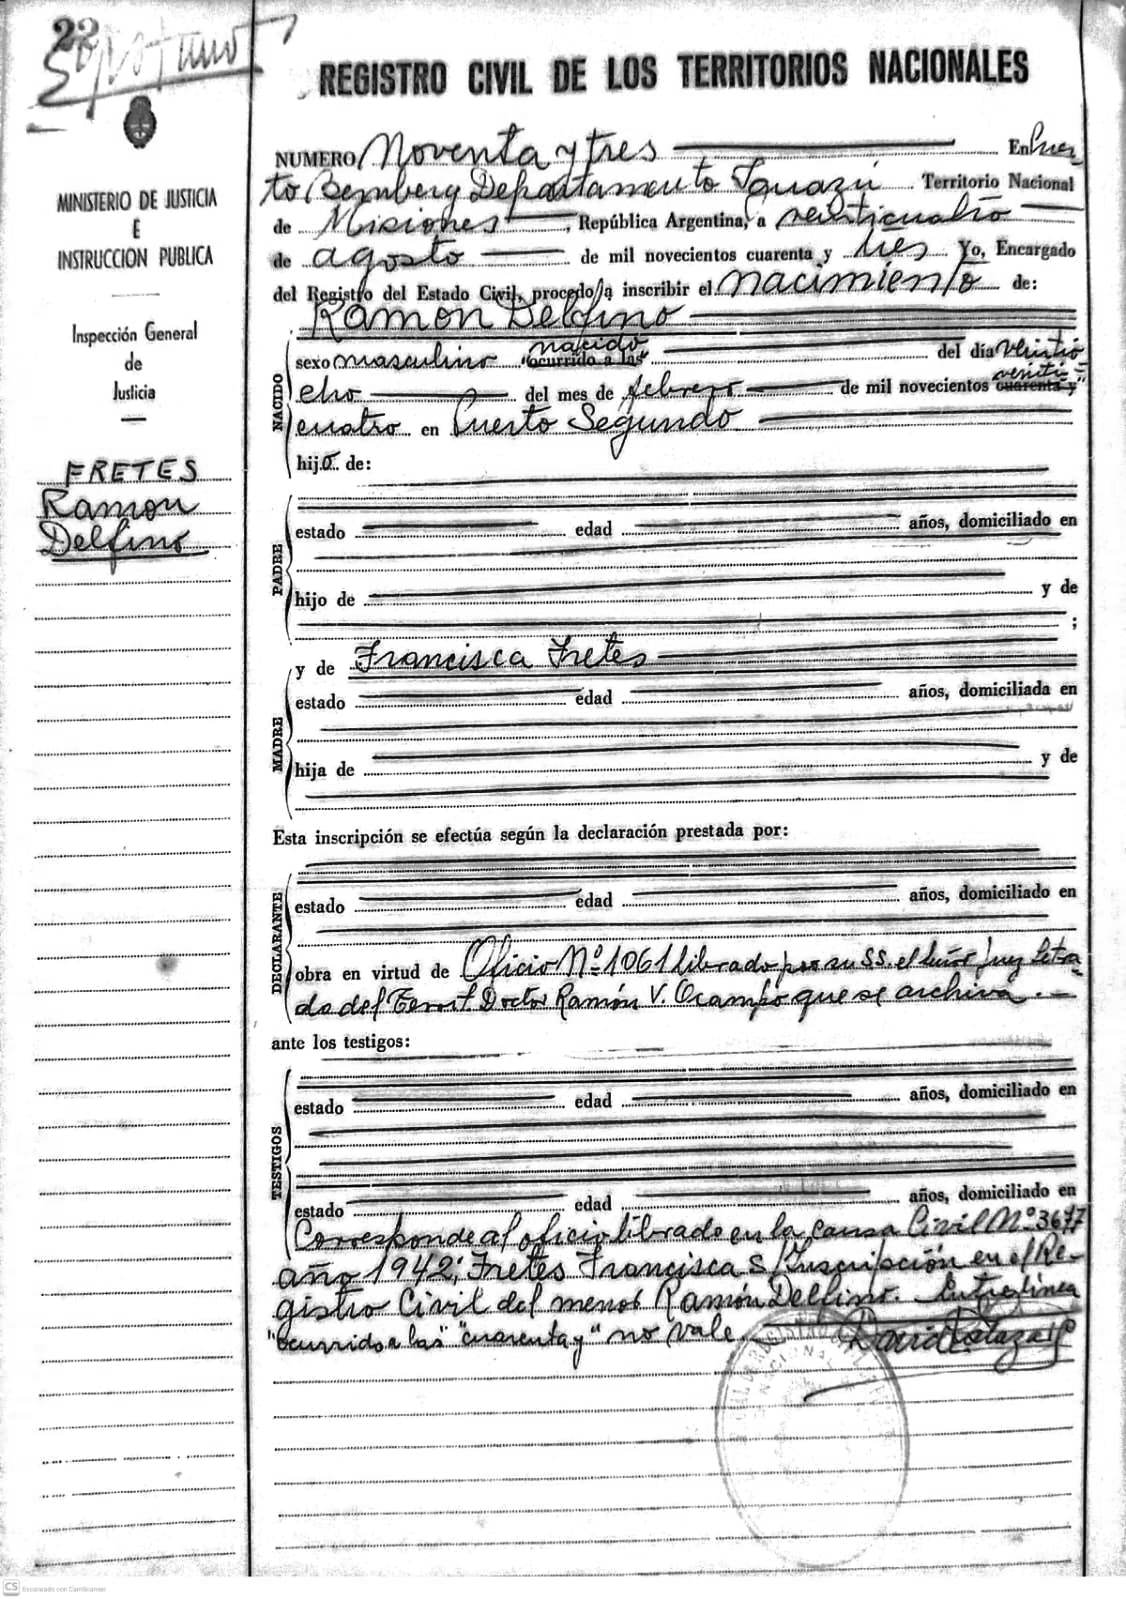 22
REGISTRO CIVIL DE LOS TERRITORIOS NACIONALES
MINISTERIO DE JUSTICIA
E
INSTRUCCION PUBLICA
Inspección General
de
Justicia
FRETES
Ramon
Delfino
NUMERO Noventa y tres En Puer-
to Bemberg Departamento Iguazú Territorio Nacional
de Misiones, República Argentina, a veinticuatro
de agosto de mil novecientos cuarenta y tres Yo, Encargado
del Registro del Estado Civil, procedo a inscribir el nacimiento de:
Ramon Delfino
NACIDO
nacido
sexo masculino "ocurrido a las" del día veintio
cho del mes de febrero de mil novecientos veinti- cuarenta y"
cuatro en Puerto Segundo
hijo de:
PADRE
estado edad años, domiciliado en
hijo de y de
;
MADRE
y de Francisca Fretes
estado edad años, domiciliada en
hija de y de
Esta inscripción se efectúa según la declaración prestada por:
DECLARANTE
estado edad años, domiciliado en
obra en virtud de Oficio Nº 1061 librado por su SS. el Señor Juez Letra-
do del Territ. Doctor Ramón V. Ocampo que se archiva.
ante los testigos:
TESTIGOS
estado edad años, domiciliado en
estado edad años, domiciliado en
Corresponde al oficio librado en la causa Civil Nº 3677
año 1942; Fretes Francisca S/Inscripción en el Re-
gistro Civil del menor Ramón Delfino. Entrelinea
"ocurrido a las" "cuarenta y" no vale.
CS Escaneado con CamScanner